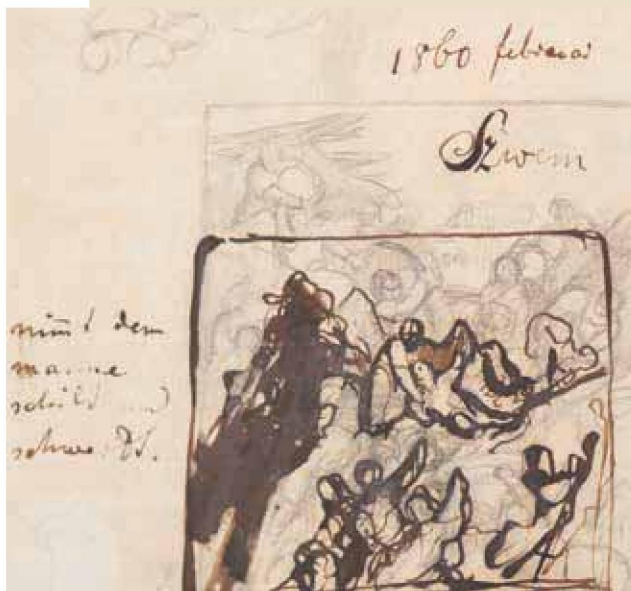 1860 februar
nim̄t dem
manne
schild und
schwerdt.